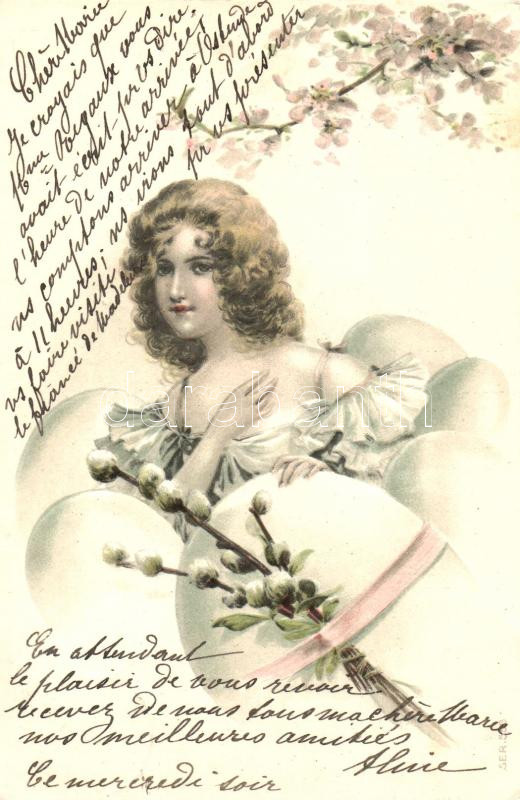 Chère Marie
Je croyais que
Mme vous
avait écrit pr vs dire
l'heure de notre arrivée,
ns comptons arriver à Ostende
à 11 heures; ns irons tout d'abord
vs faire visite pr vs présenter
le fiancé de Madeleine
darabanth
En attendant
le plaisir de vous revoir
recevez de nous tous ma chère Marie
nos meilleures amitiés
Aline
Ce mercredi soir